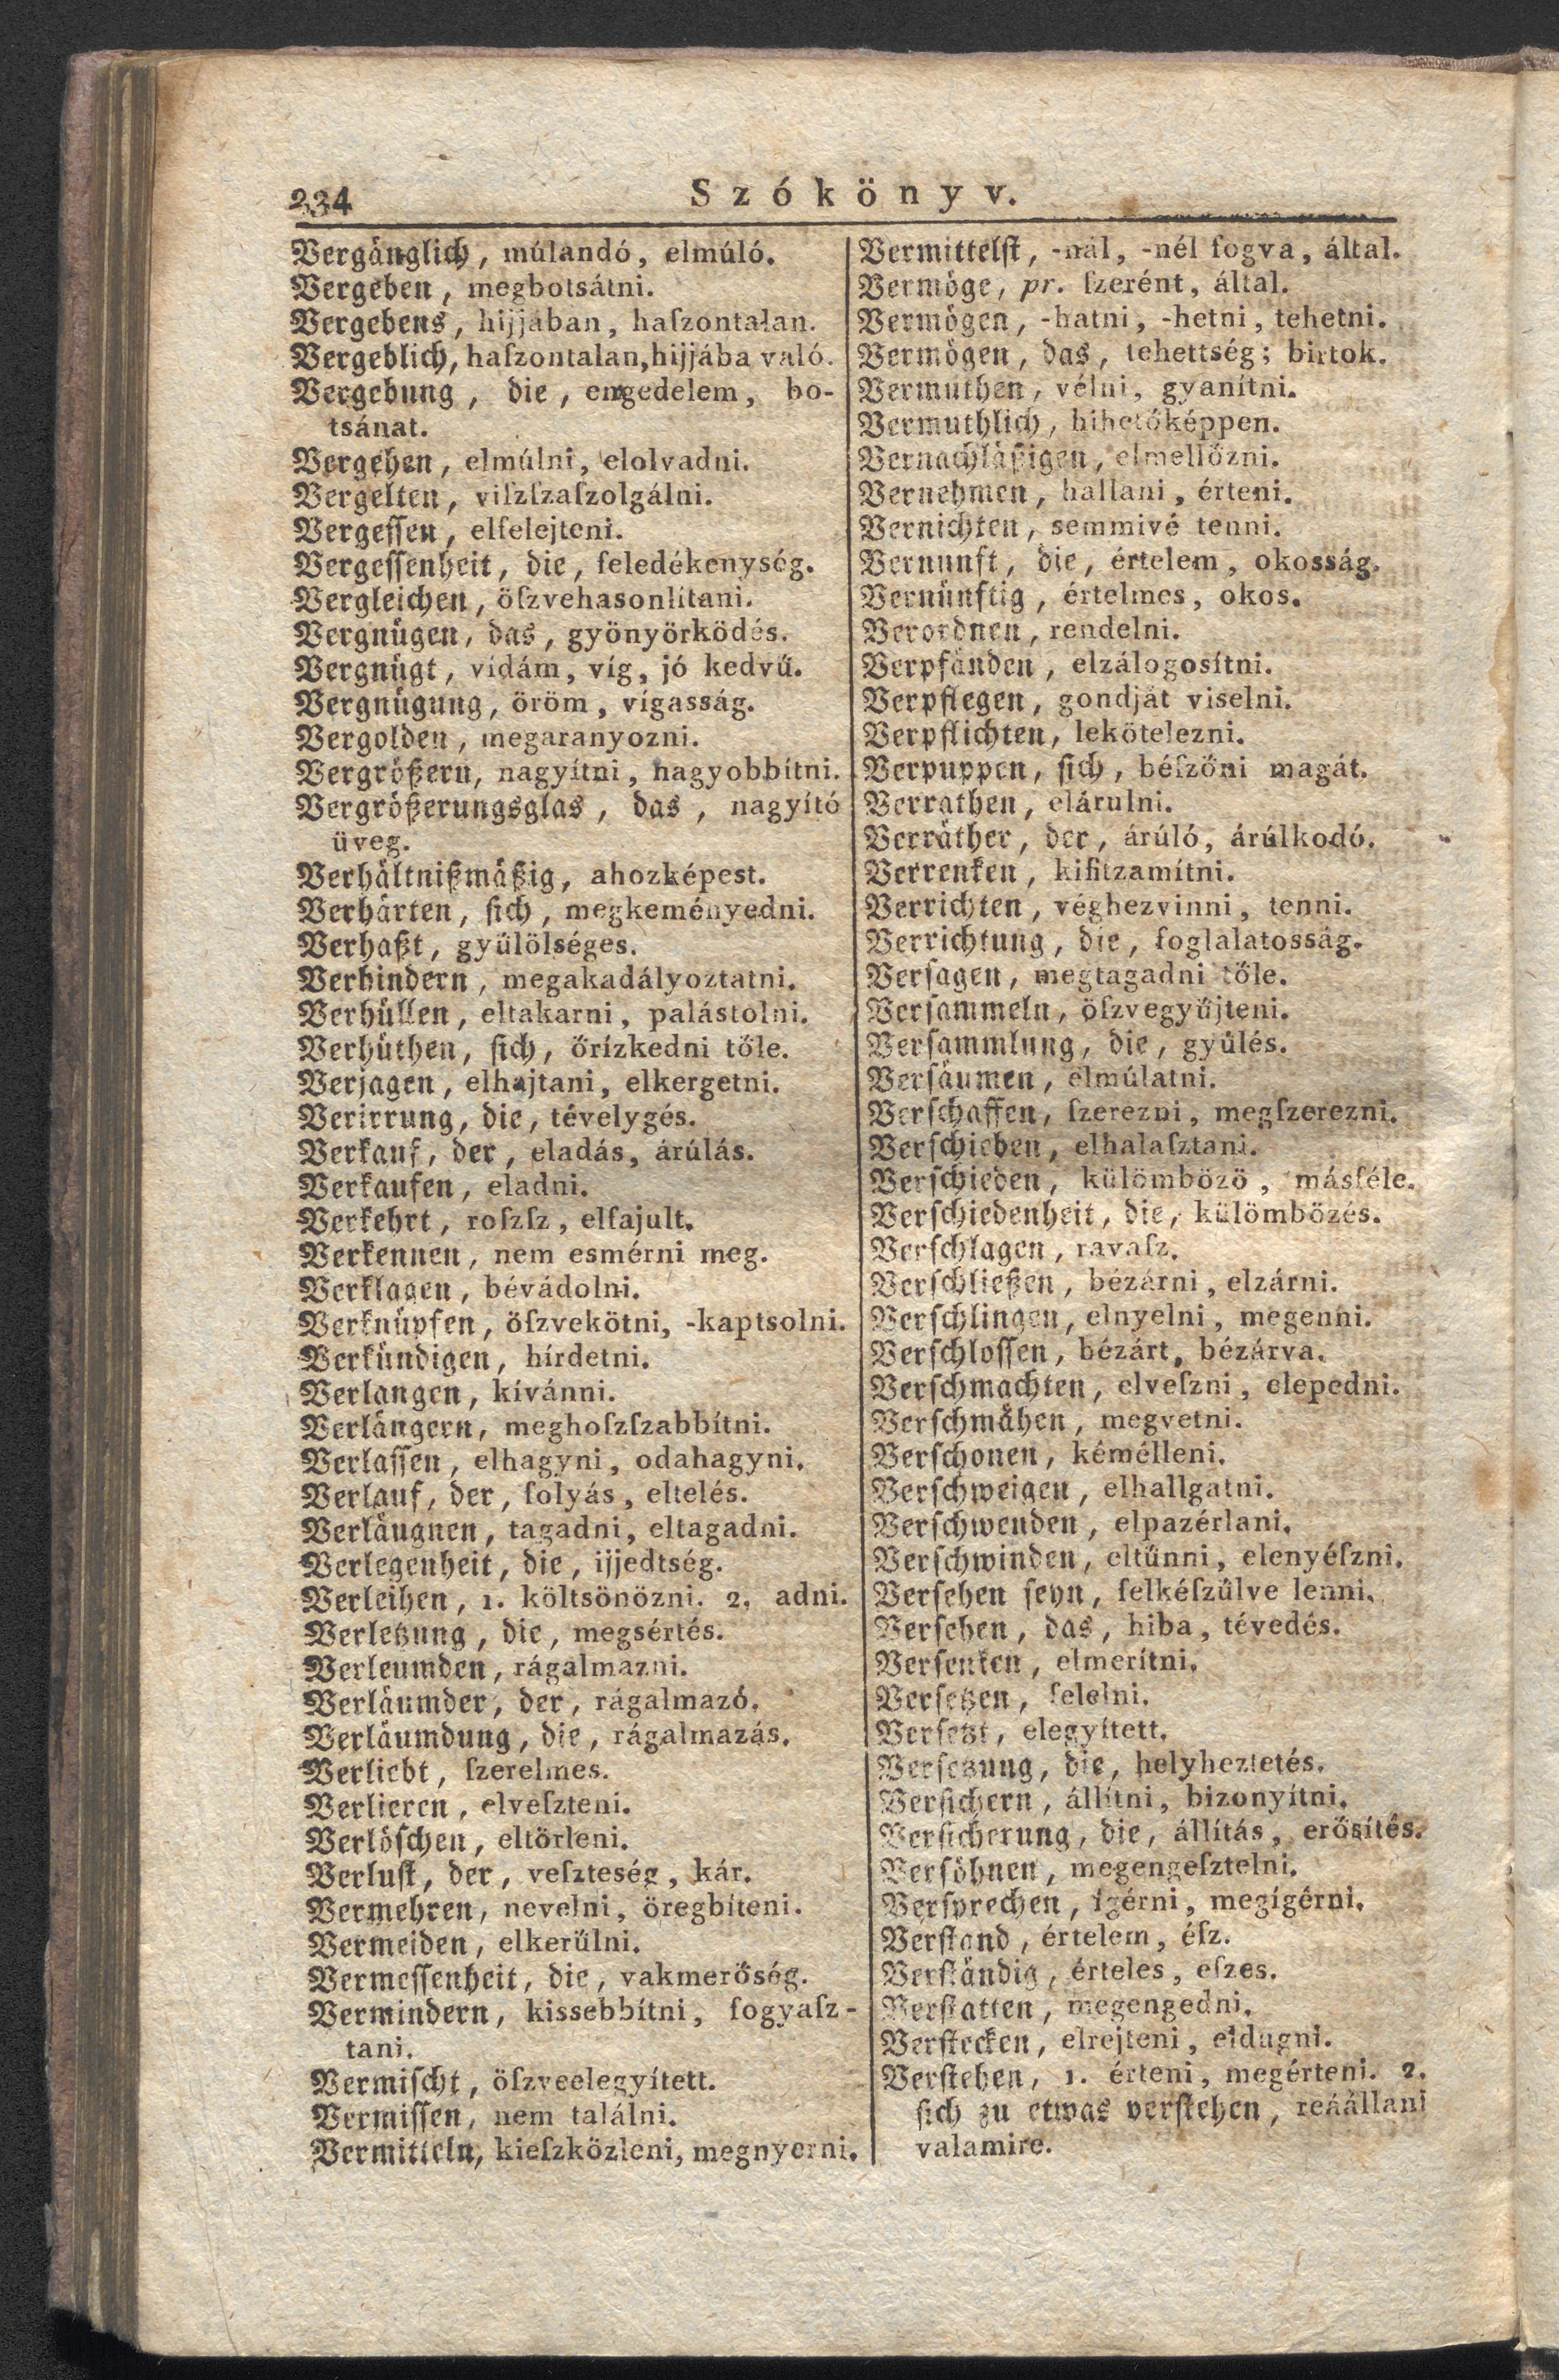 234
Szókönyv.
Vergänglich, múlandó, elmúló.
Vergeben, megbotsátni.
Vergebens, hijjában, haſzontalan.
Vergeblich, haſzontalan, hijjába való.
Vergebung, die, engedelem, bo-
tsánat.
Vergehen, elmúlni, elolvadni.
Vergelten, viſzſzaſzolgálni.
Vergeſſen, elfelejteni.
Vergeſſenheit, die, feledékenység.
Vergleichen, öſzvehasonlítani.
Vergnügen, das, gyönyörködés.
Vergnügt, vídám, víg, jó kedvű.
Vergnügung, öröm, vígasság.
Vergolden, megaranyozni.
Vergrößern, nagyítni, nagyobbítni.
Vergrößerungsglas, das, nagyító
üveg.
Verhältnißmäßig, ahozképest.
Verhärten, ſich, megkeményedni.
Verhaßt, gyűlölséges.
Verhindern, megakadályoztatni.
Verhüllen, eltakarni, palástolni.
Verhüthen, ſich, őrízkedni tőle.
Verjagen, elhajtani, elkergetni.
Verirrung, die, tévelygés.
Verkauf, der, eladás, árúlás.
Verkaufen, eladni.
Verkehrt, roſzſz, elfajult.
Verkennen, nem esmérni meg.
Verklagen, bévádolni.
Verknüpfen, öſzvekötni, -kaptsolni.
Verkündigen, hírdetni.
Verlangen, kívánni.
Verlängern, meghoſzſzabbítni.
Verlaſſen, elhagyni, odahagyni.
Verlauf, der, folyás, eltelés.
Verläugnen, tagadni, eltagadni.
Verlegenheit, die, ijjedtség.
Verleihen, 1. költsönözni. 2. adni.
Verletzung, die, megsértés.
Verleumden, rágalmazni.
Verläumder, der, rágalmazó.
Verläumdung, die, rágalmazás.
Verliebt, ſzerelmes.
Verlieren, elveſzteni.
Verlöſchen, eltörleni.
Verluſt, der, veſzteség, kár.
Vermehren, nevelni, öregbíteni.
Vermeiden, elkerűlni.
Vermeſſenheit, die, vakmerőség.
Vermindern, kissebbítni, fogyaſz-
tani.
Vermiſcht, öſzveelegyített.
Vermiſſen, nem találni.
Vermitteln, kieſzközleni, megnyerni.
Vermittelſt, -nál, -nél fogva, által.
Vermöge, pr. ſzerént, által.
Vermögen, -hatni, -hetni, tehetni.
Vermögen, das, tehettség; birtok.
Vermuthen, vélni, gyanítni.
Vermuthlich, hihetőképpen.
Vernachläßigen, elmellőzni.
Vernehmen, hallani, érteni.
Vernichten, semmivé tenni.
Vernunft, die, értelem, okosság.
Vernünftig, értelmes, okos.
Verordnen, rendelni.
Verpfänden, elzálogosítni.
Verpflegen, gondját viselni.
Verpflichten, lekötelezni.
Verpuppen, ſich, béſzőni magát.
Verrathen, elárulni.
Verräther, der, árúló, árúlkodó.
Verrenken, kifitzamítni.
Verrichten, véghezvinni, tenni.
Verrichtung, die, foglalatosság.
Verſagen, megtagadni tőle.
Verſammeln, öſzvegyűjteni.
Verſammlung, die, gyűlés.
Verſäumen, elmúlatni.
Verſchaffen, ſzerezni, megſzerezni.
Verſchieben, elhalaſztani.
Verſchieden, külömböző, másféle.
Verſchiedenheit, die, külömbözés.
Verſchlagen, ravaſz.
Verſchließen, bézárni, elzárni.
Verſchlingen, elnyelni, megenni.
Verſchloſſen, bézárt, bézárva.
Verſchmachten, elveſzni, elepedni.
Verſchmähen, megvetni.
Verſchonen, kémélleni.
Verſchweigen, elhallgatni.
Verſchwenden, elpazérlani.
Verſchwinden, eltűnni, elenyéſzni.
Verſehen ſeyn, felkéſzűlve lenni.
Verſehen, das, hiba, tévedés.
Verſenken, elmerítni.
Verſetzen, felelni.
Verſetzt, elegyített.
Verſetzung, die, helyheztetés.
Verſichern, állítni, bizonyítni.
Verſicherung, die, állítás, erősítés.
Verſöhnen, megengeſztelni.
Verſprechen, ígérni, megígérni.
Verſtand, értelem, éſz.
Verſtändig, érteles, eſzes.
Verſtatten, megengedni.
Verſtecken, elrejteni, eldugni.
Verſtehen, 1. érteni, megérteni. 2.
ſich zu etwas verſtehen, reáállani
valamire.